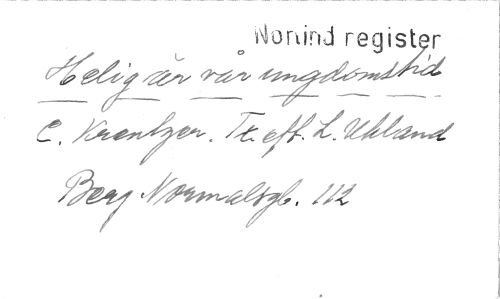 Norlind register
Helig är vår ungdomstid
C. Kreutzer. Tx. eft. L. Uhland
Berg Normalsgb. 112